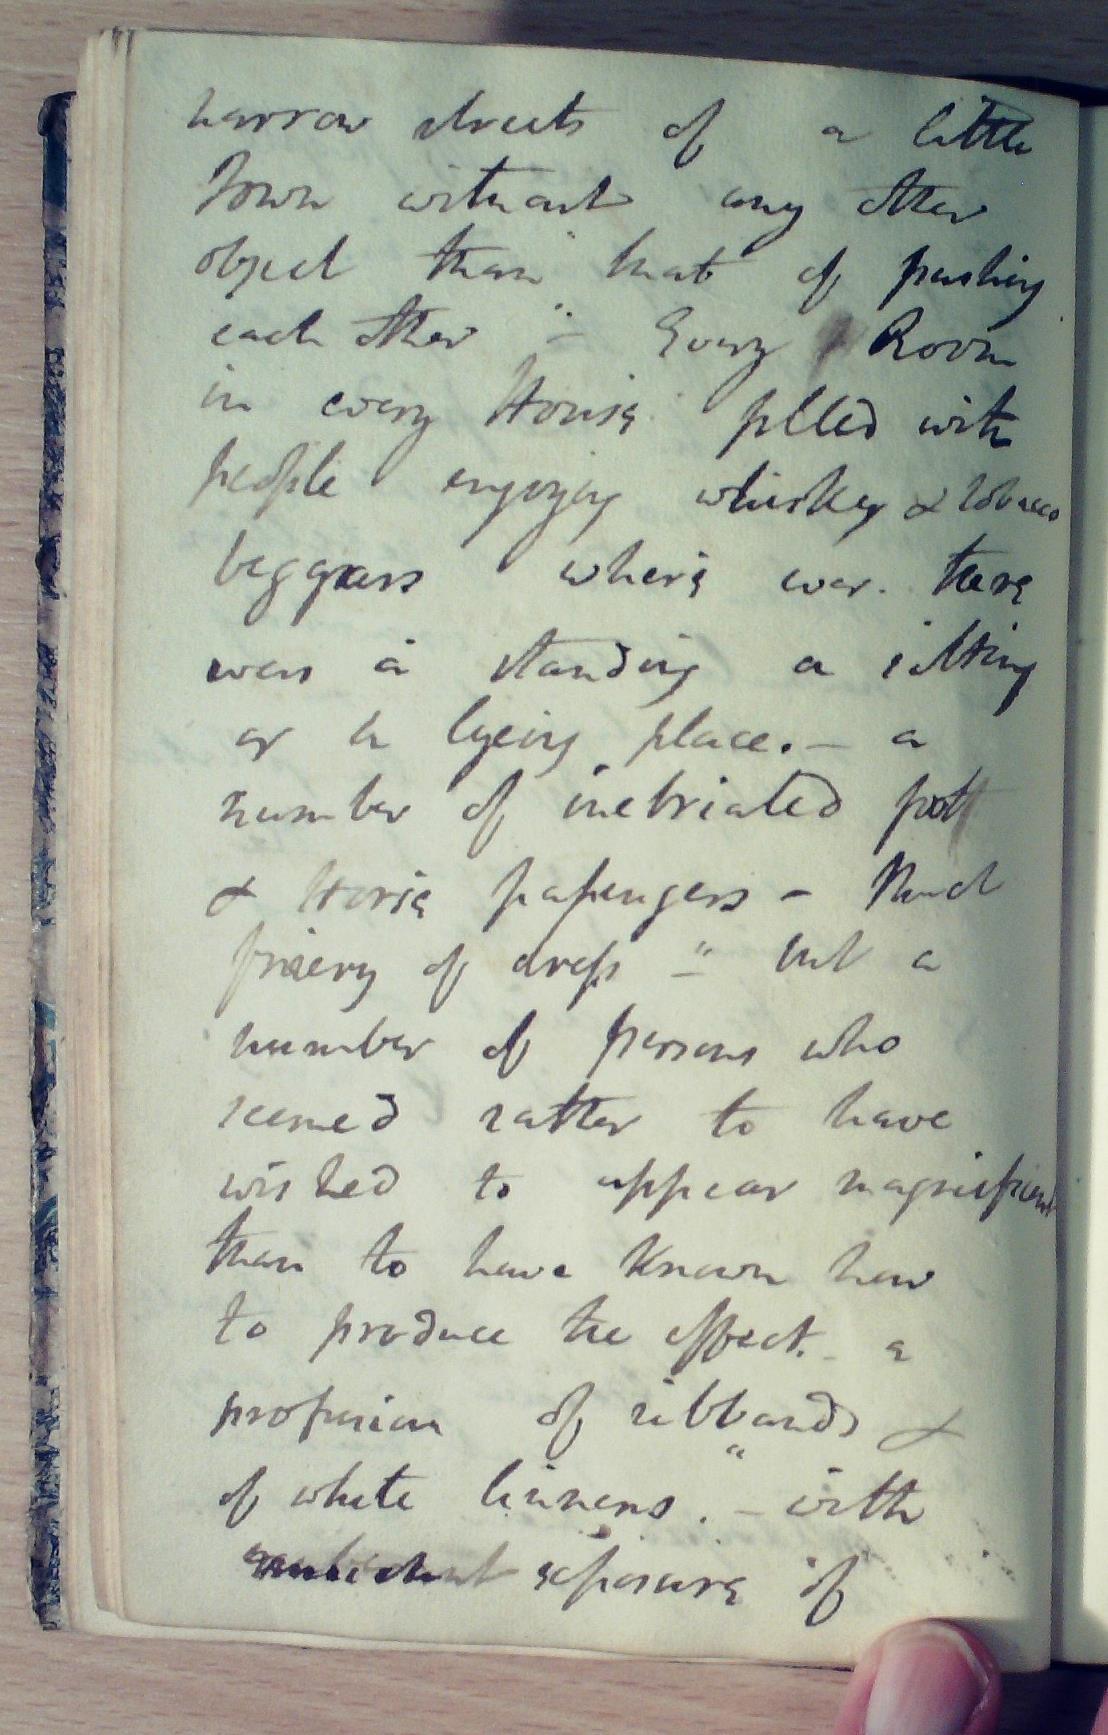 narrow streets of a little
Town without any other
object than that of pushing
each other " – Every Room
in every House filled with
people enjoying whiskey & tobacco
beggars where ever there
was a standing a sitting
or a lyeing place. – a
number of inebriated foot
& Horse passengers – Much
finery of dress – " but a
number of persons who
seemed rather to have
wished to appear magnificent
than to have known how
to produce the effect. – a
profusion of ribbands &
of white linnens. – with
exposure of